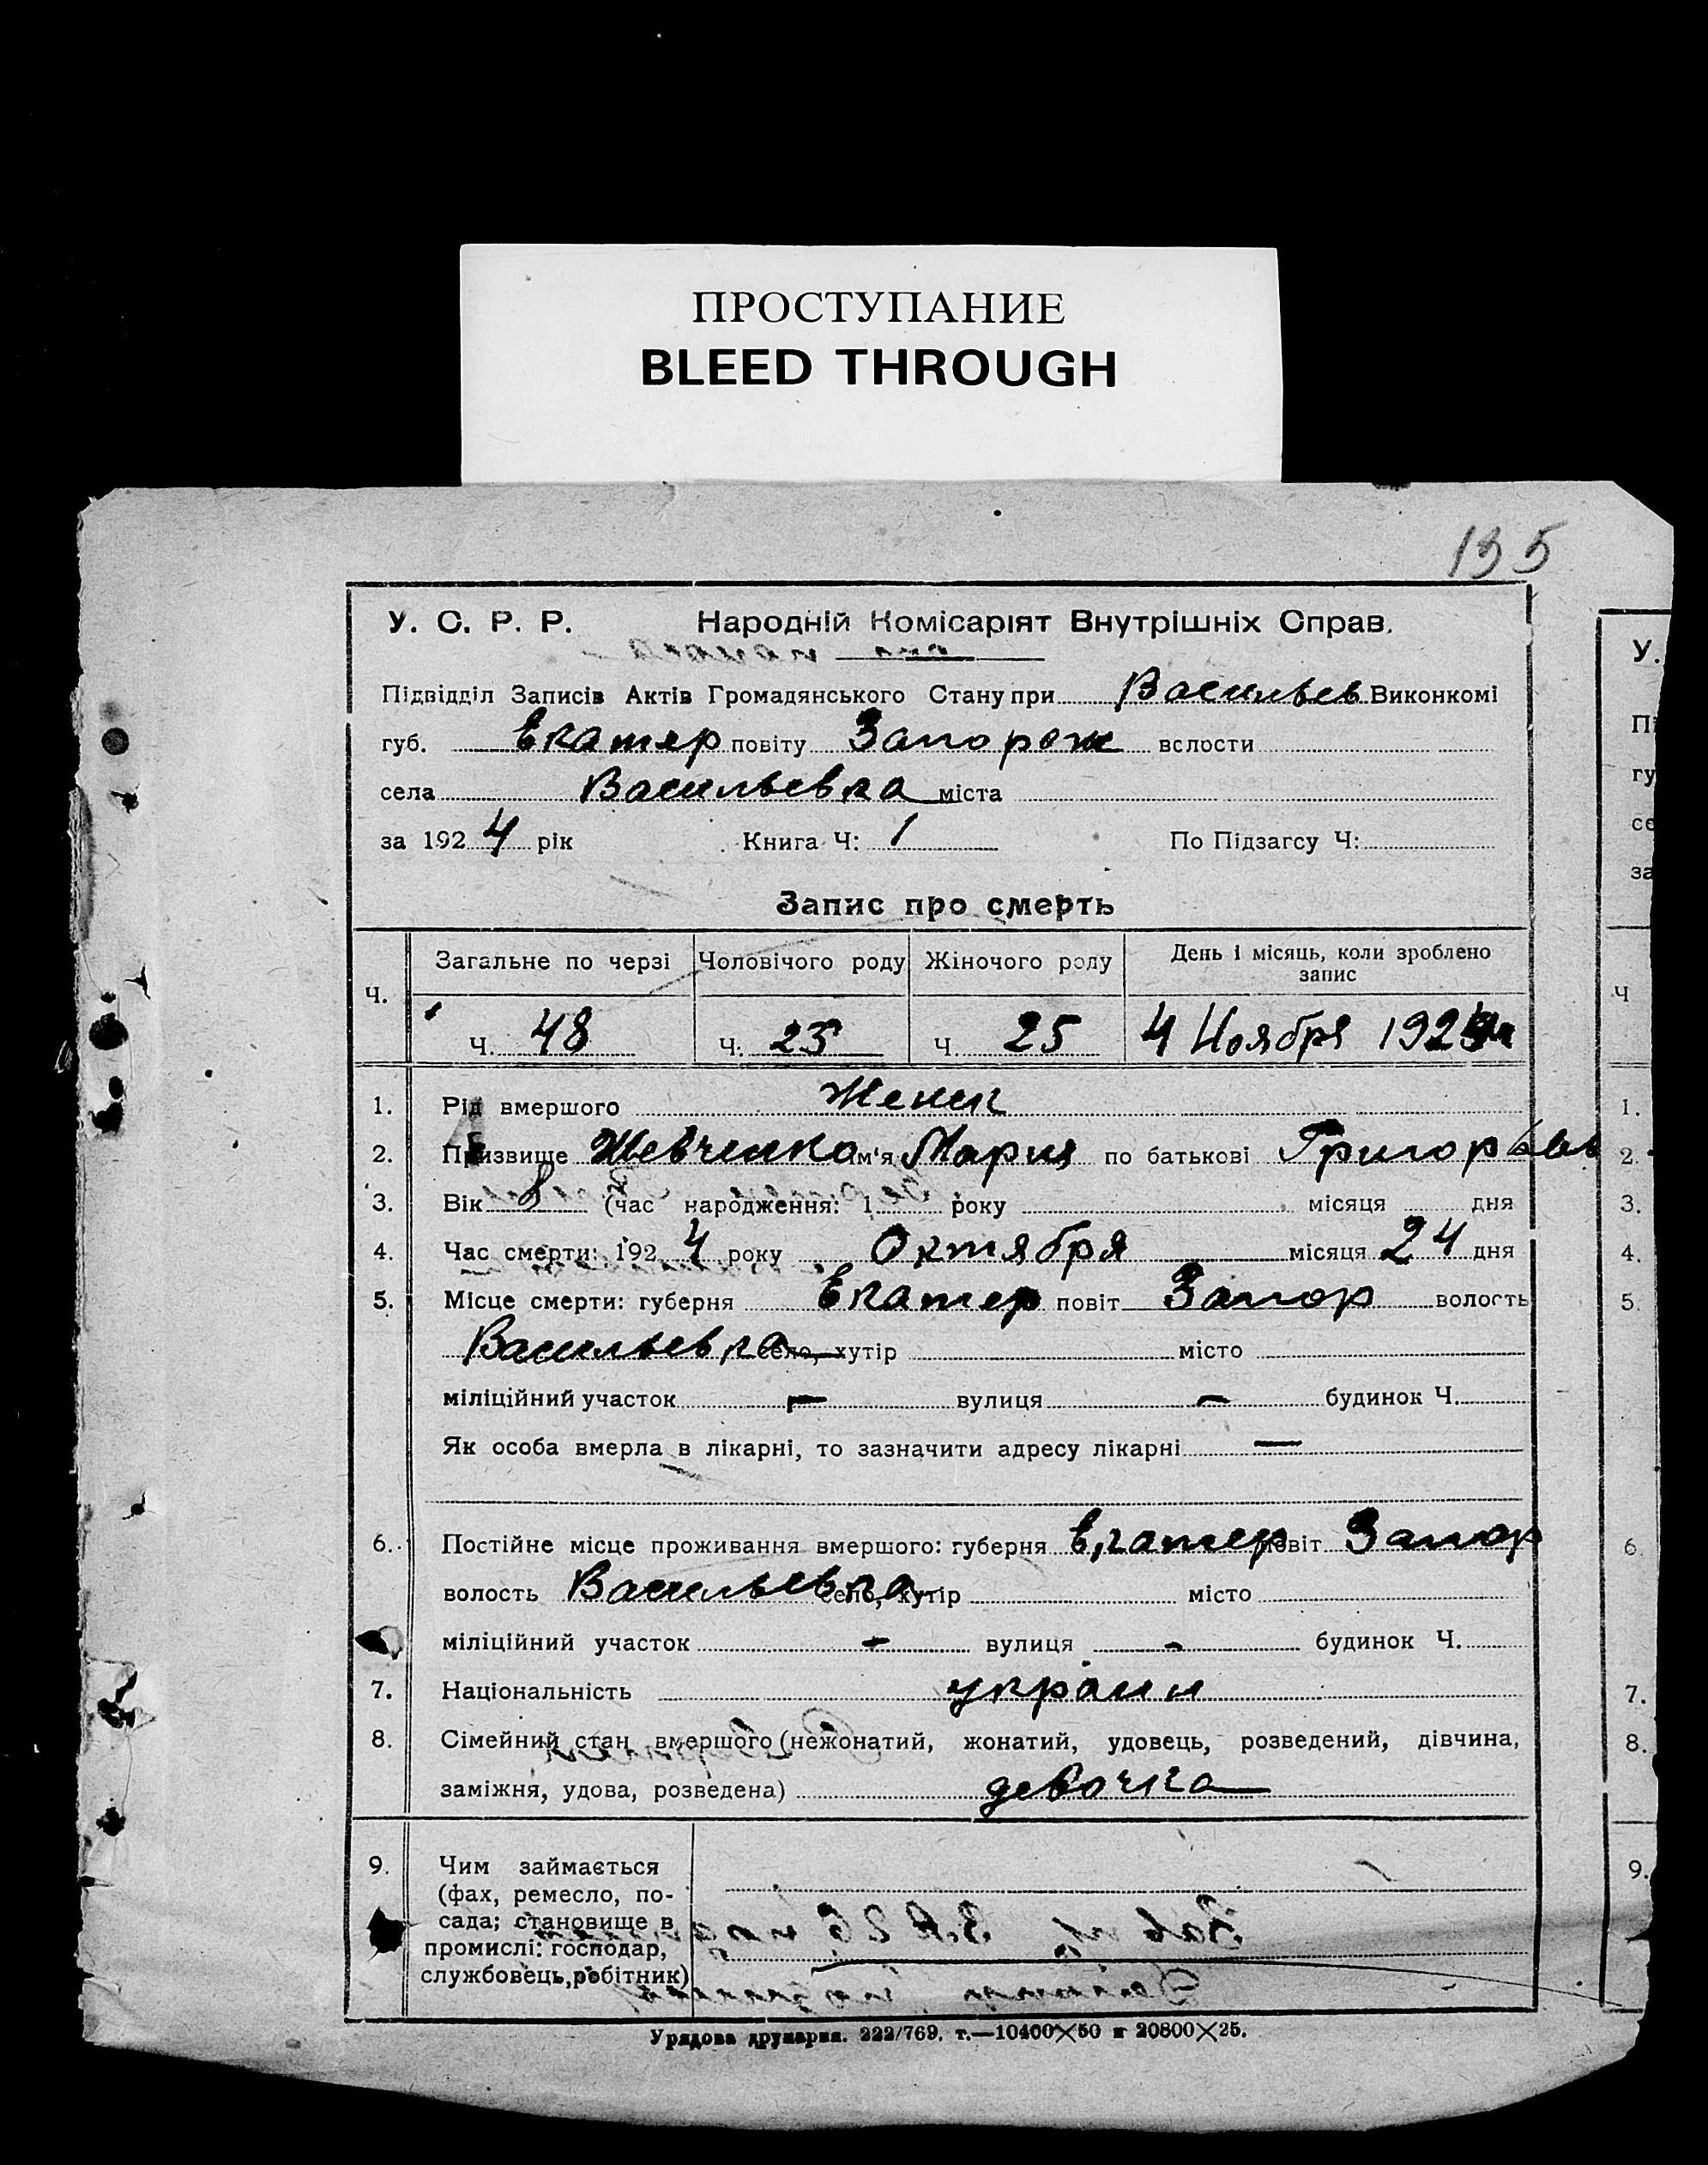 ПРОСТУПАНИЕ
BLEED THROUGH
135
У. С. Р. Р. Народній Комісаріят Внутрішніх Справ.
Підвідділ Записів Актів Громадянського Стану при Васильев Виконкомі
губ. Екатер повіту Запорож вслости
села Васильевка міста
за 1924 рік Книга Ч: 1 По Підзагсу Ч:
Запис про смерть
Ч. Загальне по черзі Чоловічого роду Жіночого роду День і місяць, коли зроблено запис
Ч. 48 Ч: 23 Ч. 25 4 Ноября 1924
1. Рід вмершого Женск
2. Призвище Шевченко Им'я Мария по батькові Григорьев
3. Вік 8 (час народження: 1 року місяця дня
4. Час смерти: 1924 року Октября місяця 24 дня
5. Місце смерти: губерня Екатер повіт Запор волость
Васильевка село, хутір місто
міліційний участок — вулиця — будинок Ч.
Як особа вмерла в лікарні, то зазначити адресу лікарні —
6. Постійне місце проживання вмершого: губерня Екатер повіт Запор
волость Васильевка село, хутір місто
міліційний участок - вулиця - будинок Ч.
7. Національність украин
8. Сімейний стан вмершого (нежонатий, жонатий, удовець, розведений, дівчина,
заміжня, удова, розведена) девочка
9. Чим займається
(фах, ремесло, по-
сада; становище в
промислі: господар,
службовець, робітник)
Урядова друкарня. 222/769. т.—10400×50 и 20800×25.
У.
Пі
гу
се
за
Ч
1.
2.
3.
4.
5.
6.
7.
8.
9.